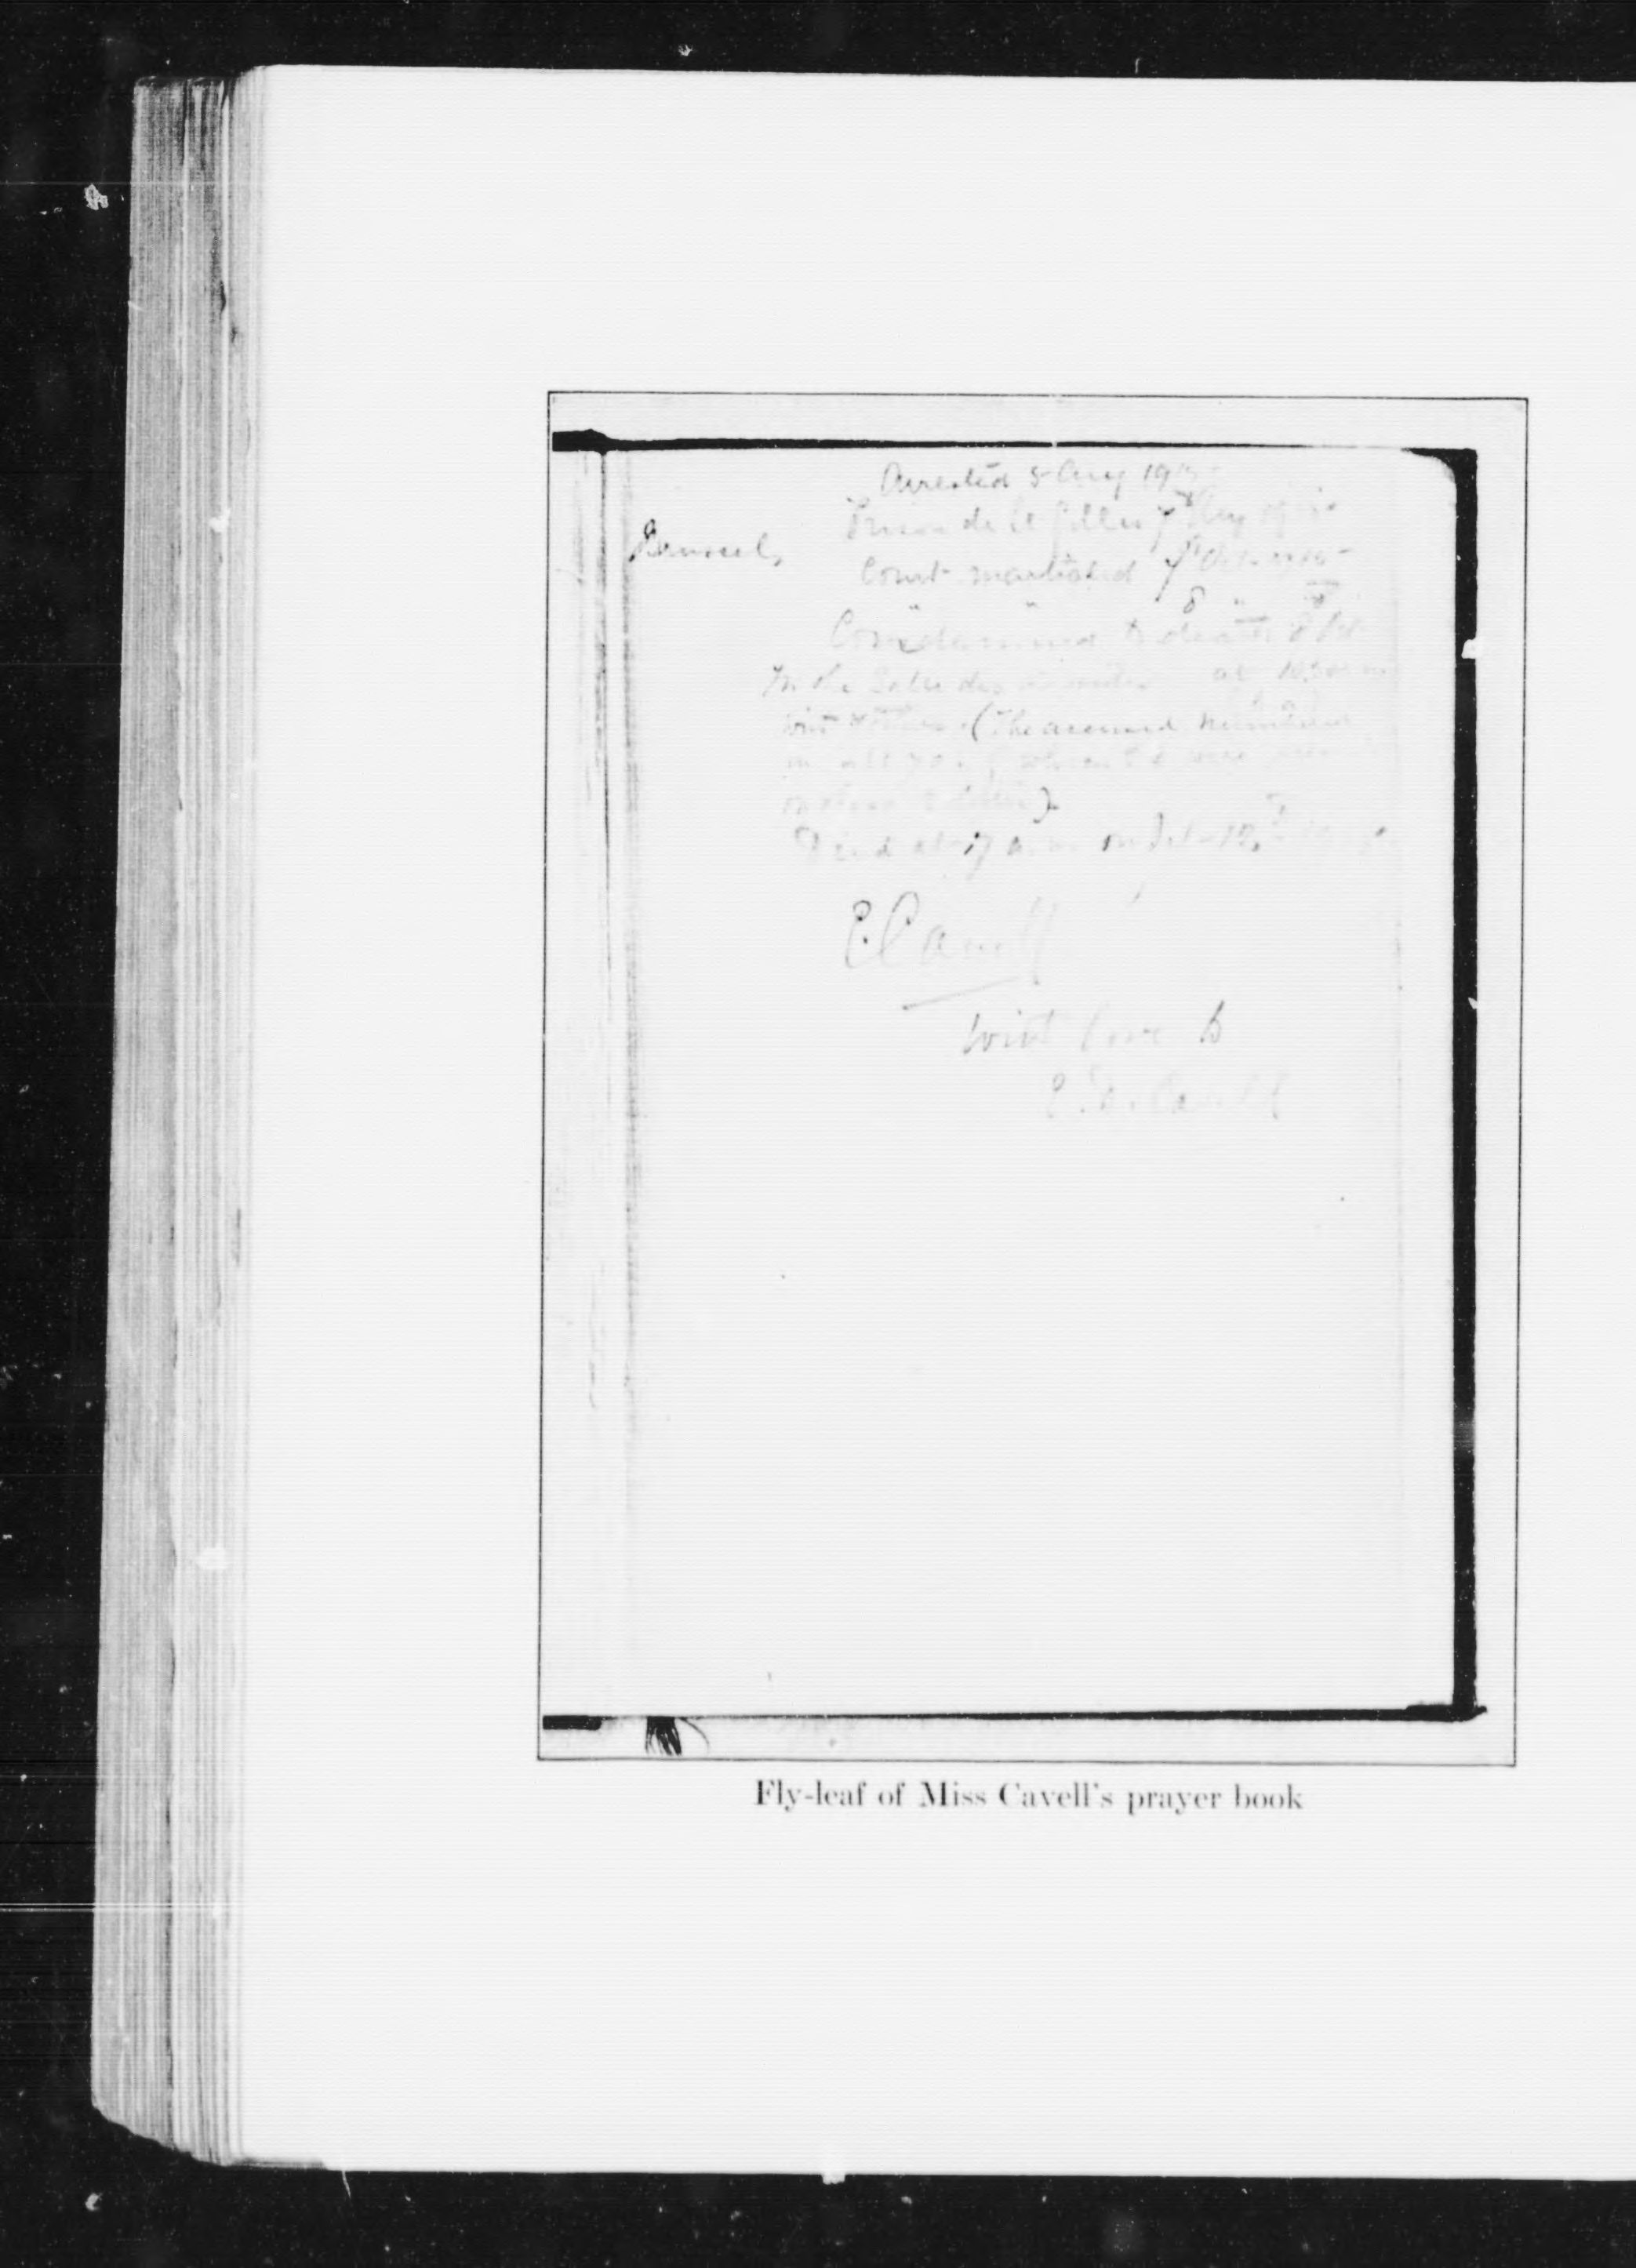 Arrested 5 Aug 1915
Brussels
Prison de St Gilles 7th Aug
Court martialed 7th Oct 1915
" " 8 " "
Condemned to death 8 Oct
In the Salle des at 10.30
with (The accused numbered
in all 70 of whom
).
Died at 7 a.m. on Oct 12th
E. Cavell
With love to
E. D. Cavell
Fly-leaf of Miss Cavell's prayer book